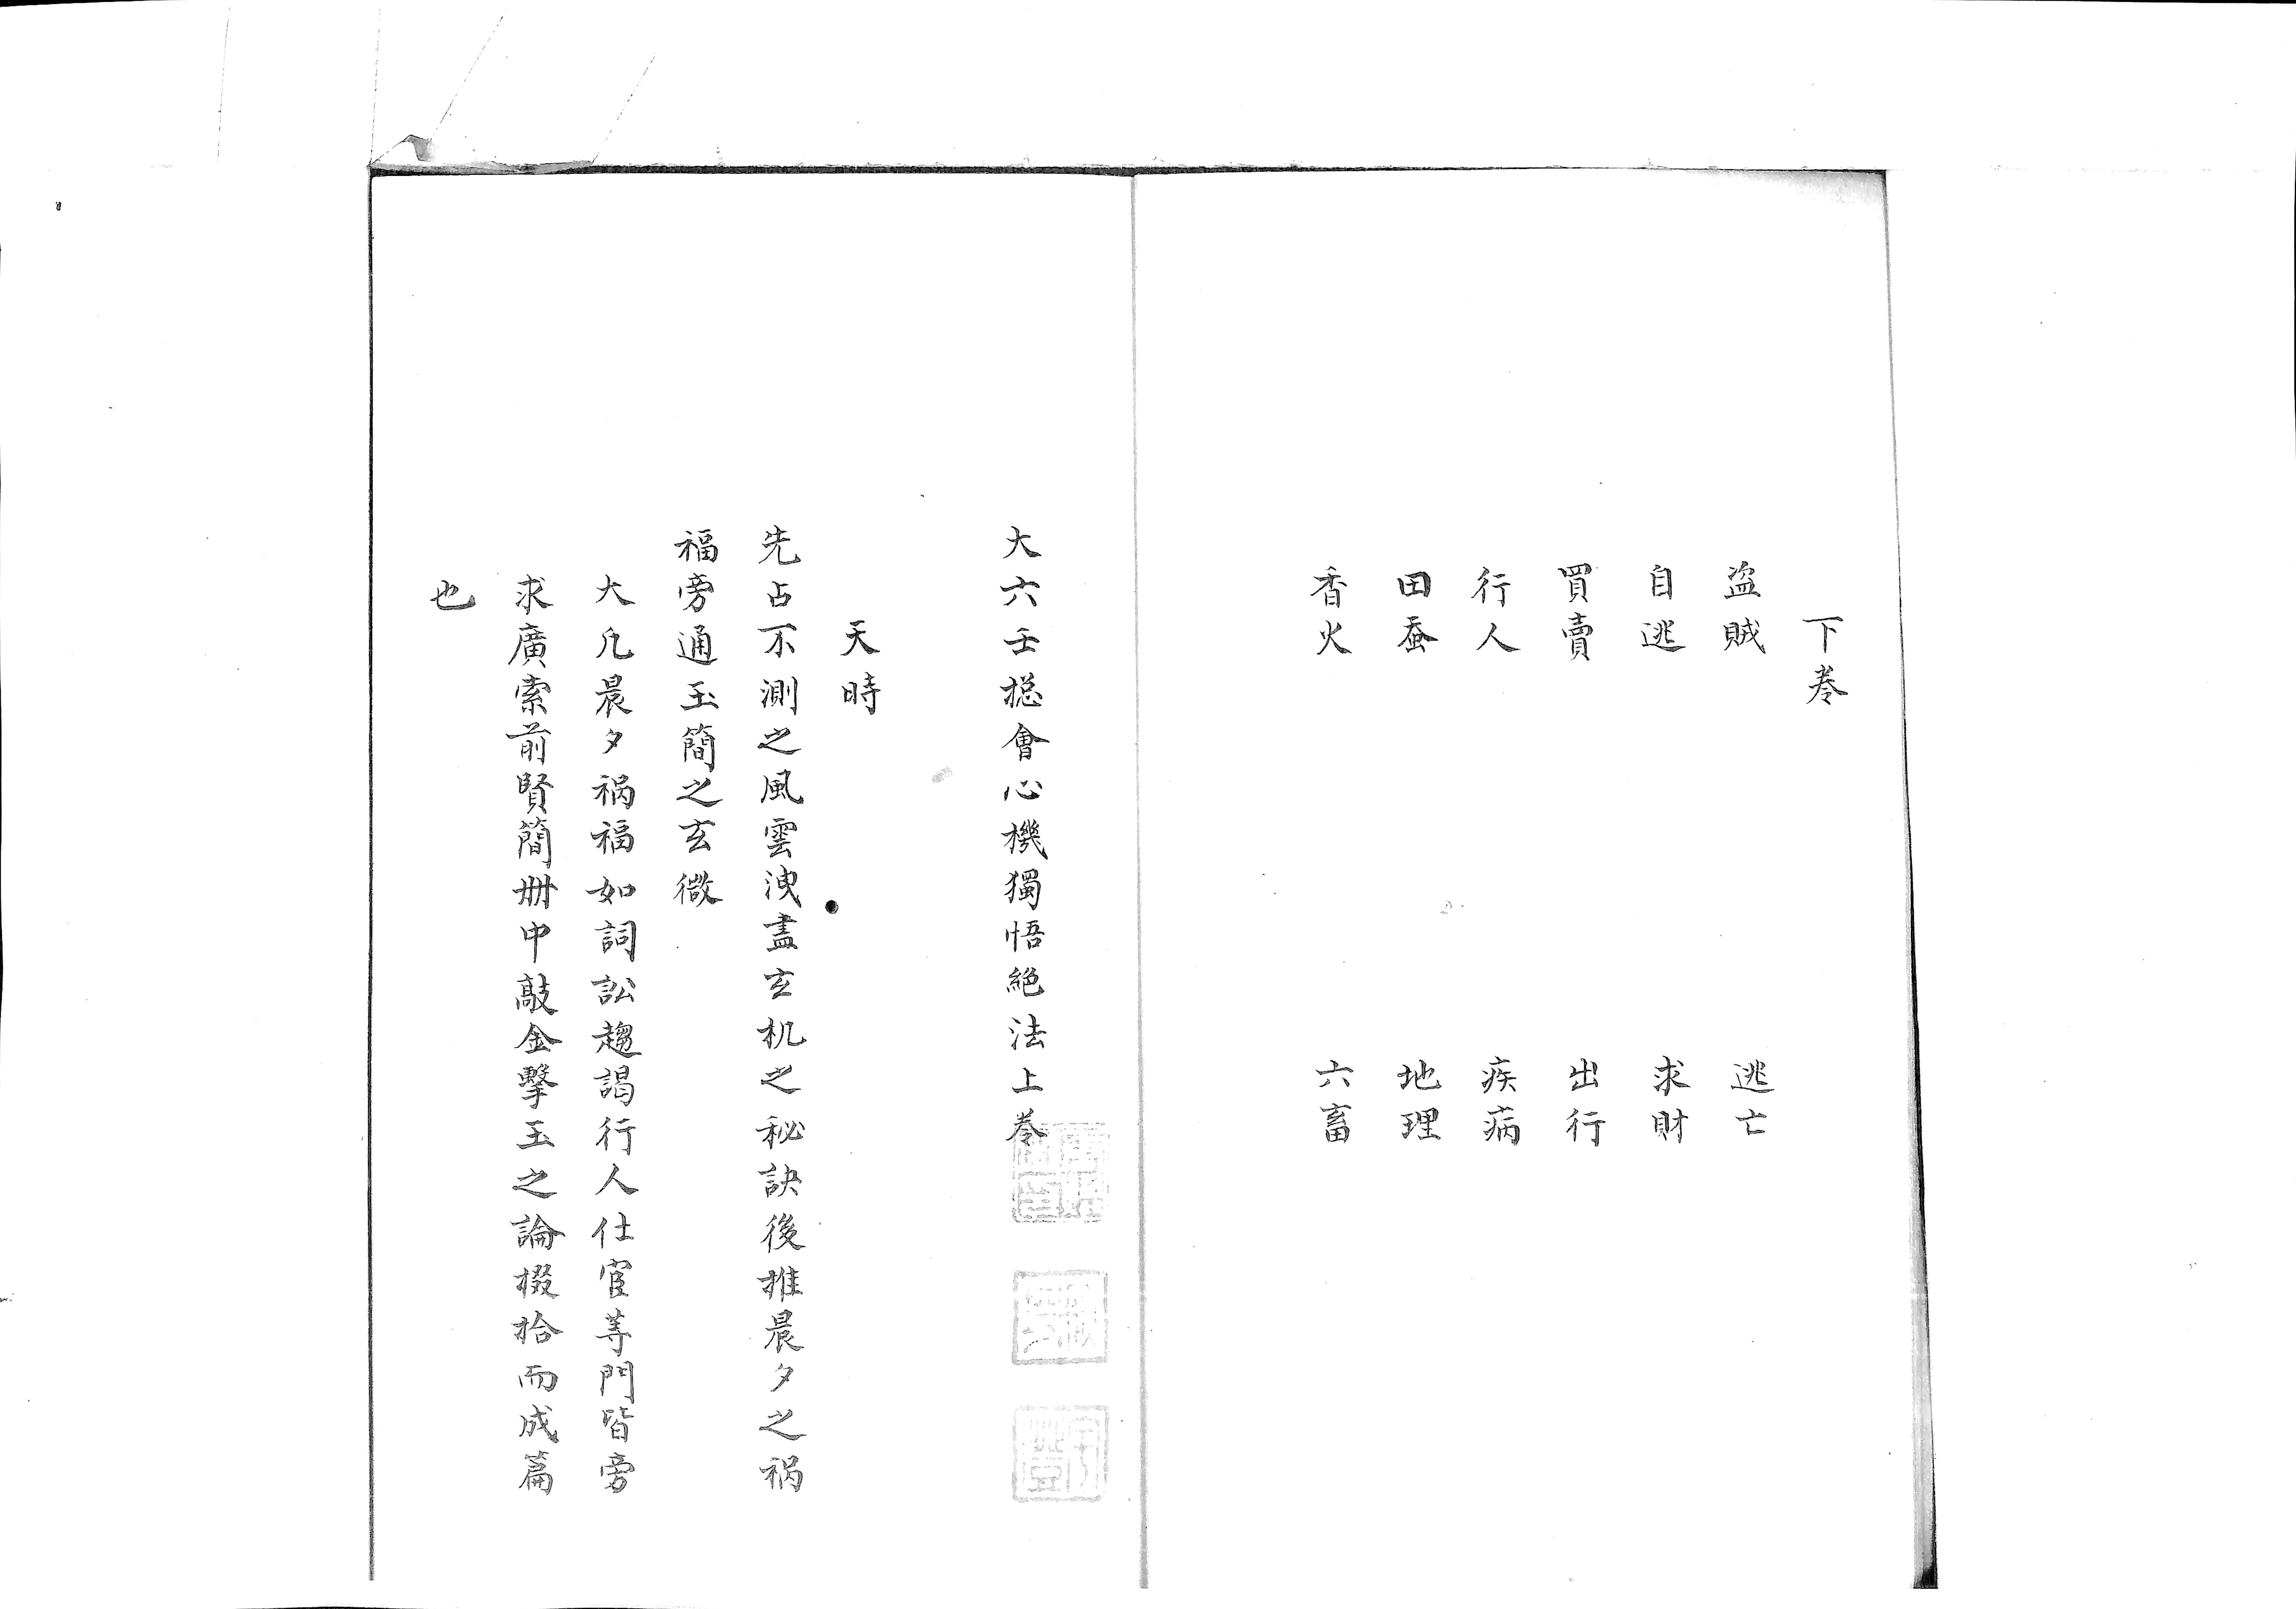 下巻
盗賊　逃亡
自逃　求財
買賣　出行
行人　疾病
田蚕　地理
香火　六畜
大六壬捴會心機獨悟絶法上巻
天時
先占不測之風雲洩盡玄机之秘訣後推晨夕之祸
福旁通玉簡之玄微
大凡晨夕祸福如詞訟趨謁行人仕宦等門皆旁
求廣索前賢簡册中敲金擊玉之論掇拾而成篇
也